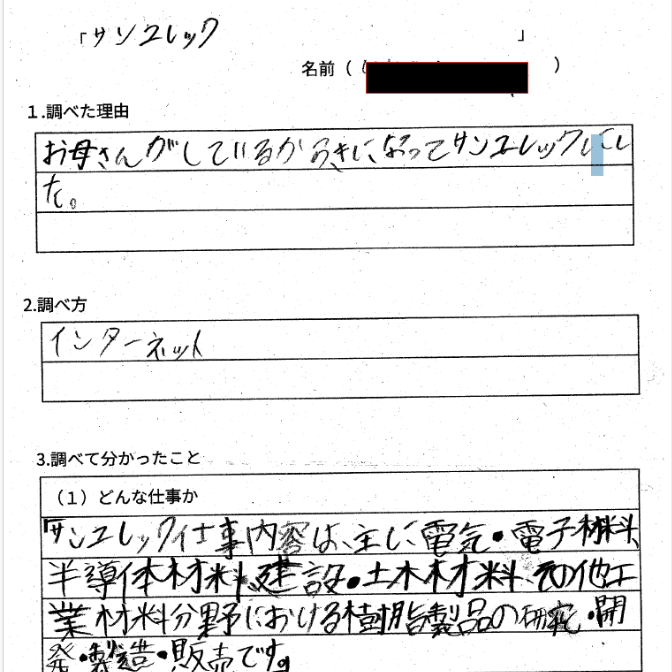 「サンユレック 」
名前（ ）
1.調べた理由
お母さんがしているからきになってサンユレックにし
た。
2.調べ方
インターネット
3.調べて分かったこと
（1）どんな仕事か
「サンユレック仕事内容は、主に電気・電子材料
半導体材料、建設・土木材料、その他工
業材料分野における樹脂製品の研究・開
発・製造・販売です。